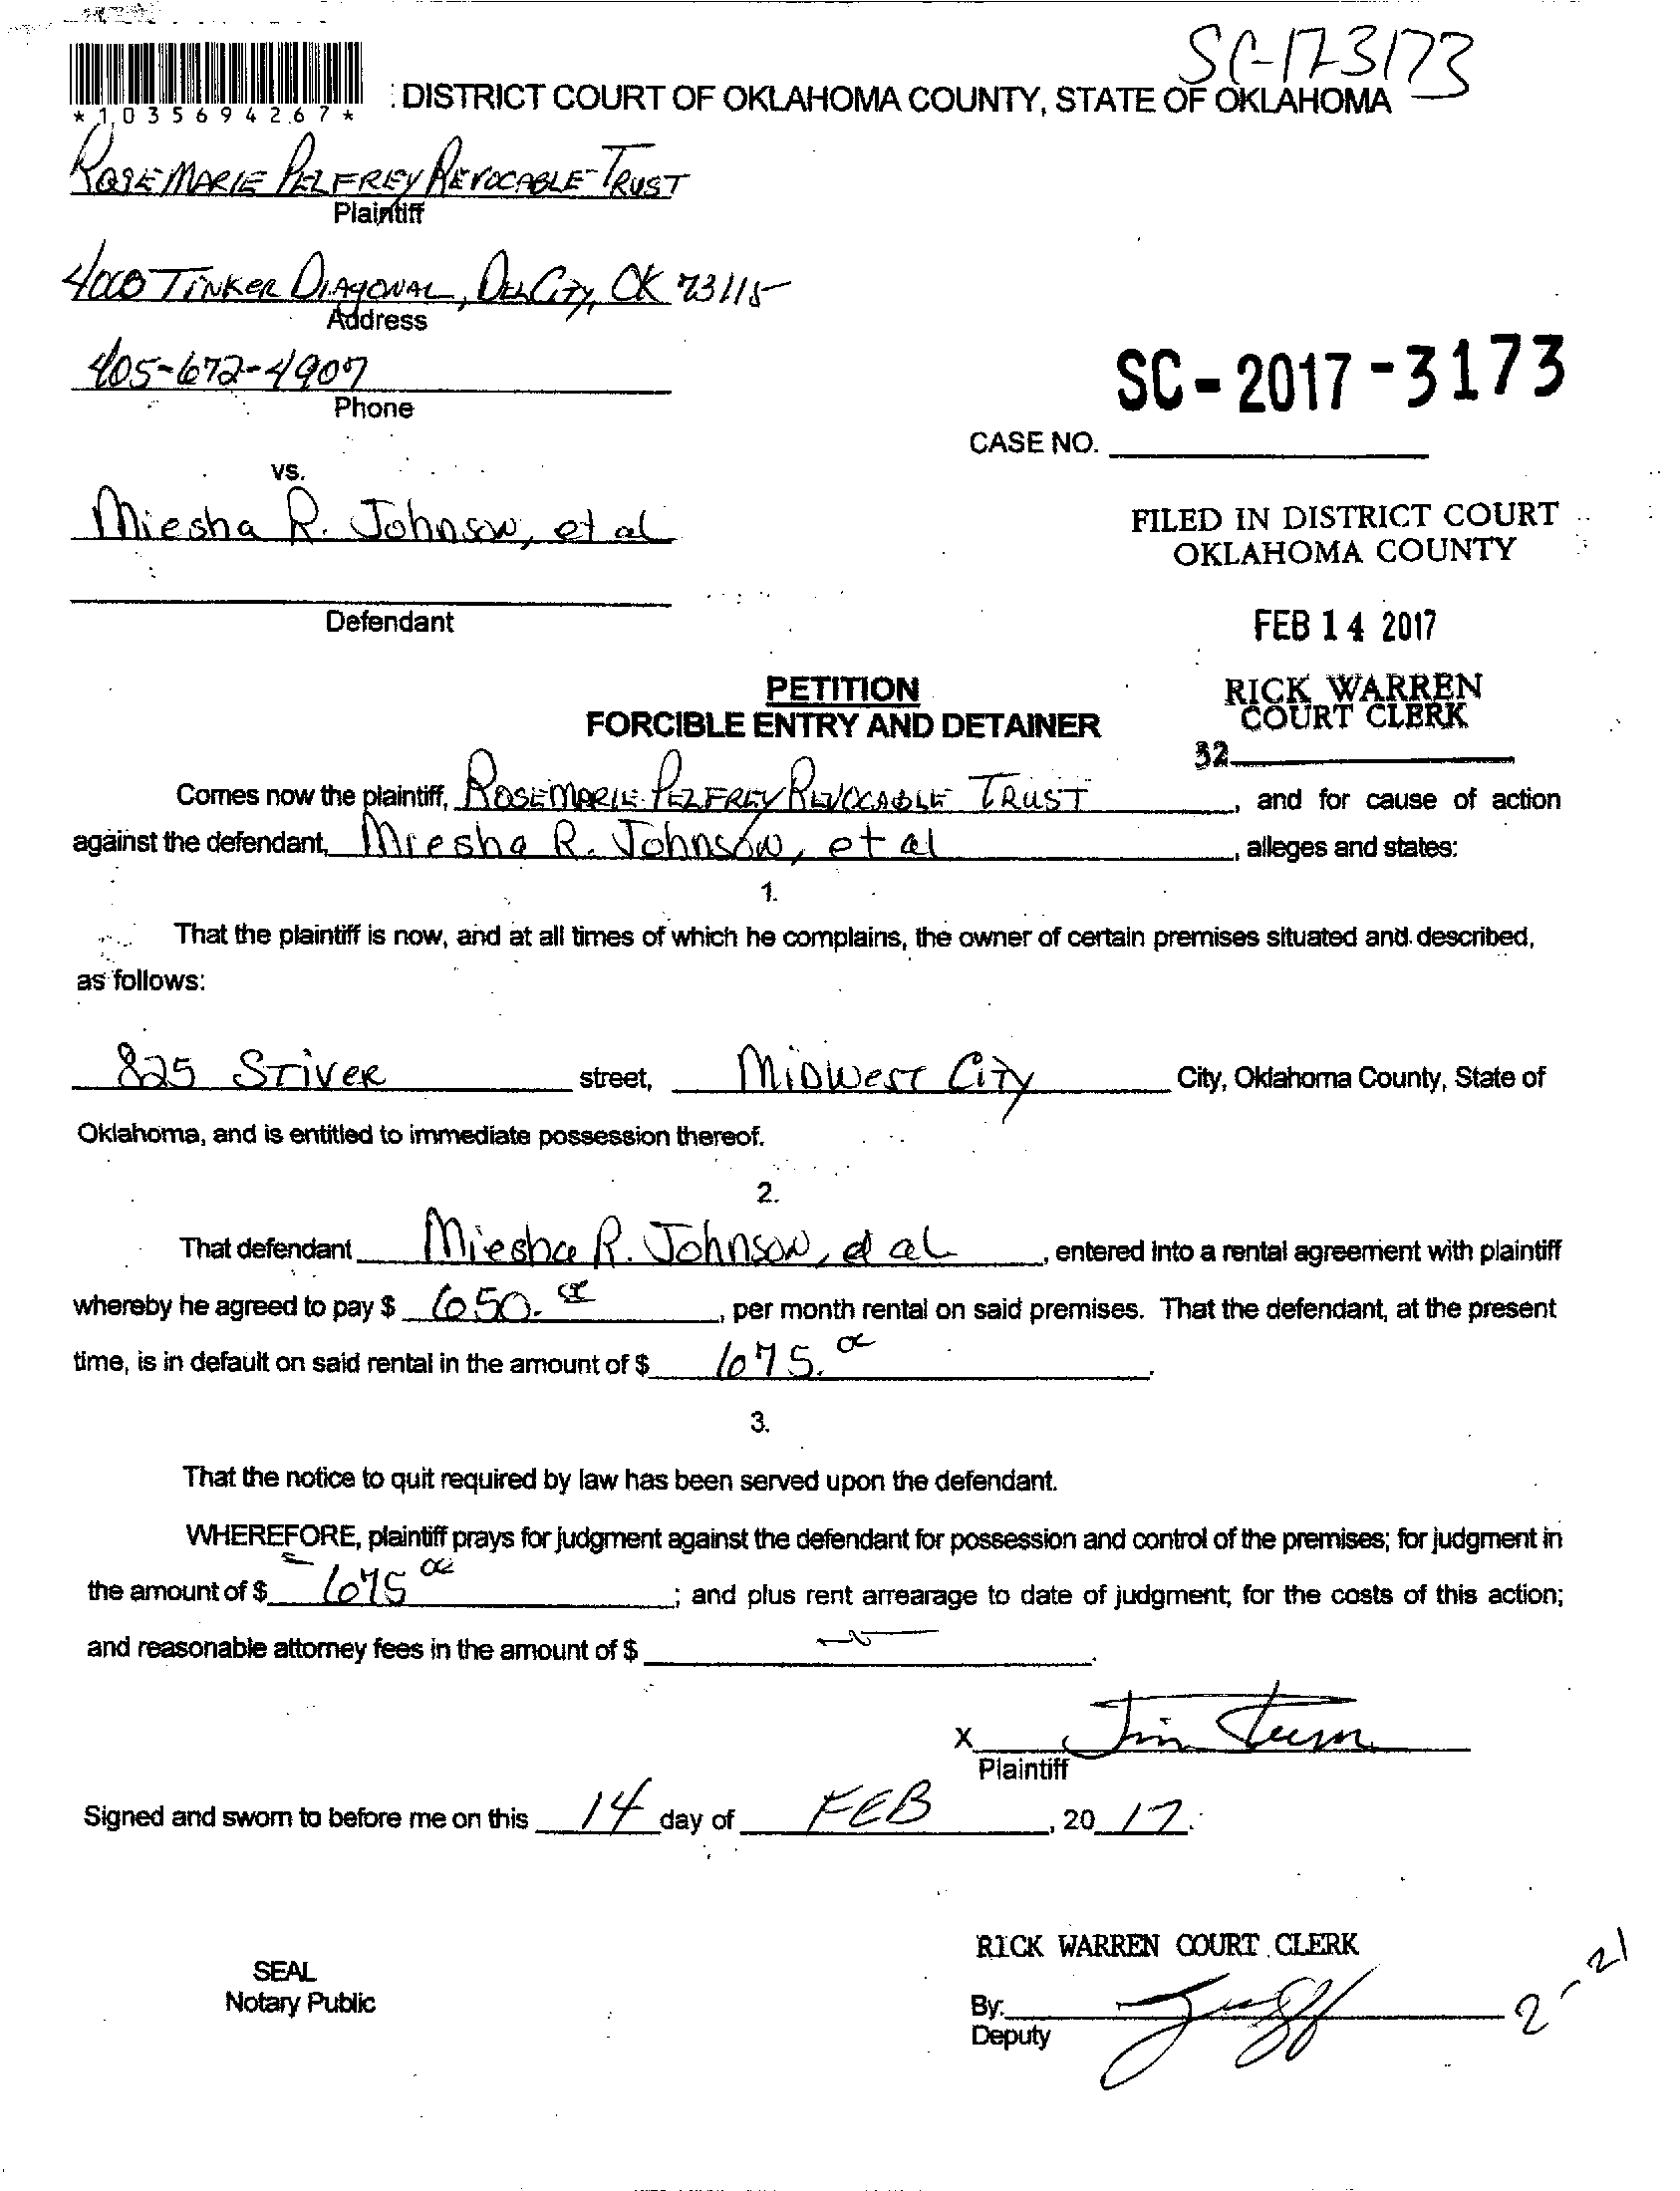 SC-17-3173
*1035694267*
: DISTRICT COURT OF OKLAHOMA COUNTY, STATE OF OKLAHOMA
ROSEMARIE PELFREY REVOCABLE TRUST
Plaintiff
4000 TINKER DIAGONAL, DEL CITY, OK 73115
Address
405-672-4907
Phone
SC-2017-3173
CASE NO.
vs.
Miesha R. Johnson, et al
FILED IN DISTRICT COURT
OKLAHOMA COUNTY
Defendant
FEB 14 2017
PETITION
FORCIBLE ENTRY AND DETAINER
RICK WARREN
COURT CLERK
32
Comes now the plaintiff, ROSEMARIE PELFREY REVOCABLE TRUST, and for cause of action
against the defendant, Miesha R. Johnson, et al, alleges and states:
1.
That the plaintiff is now, and at all times of which he complains, the owner of certain premises situated and described,
as follows:
825 STIVER street, MIDWEST CITY City, Oklahoma County, State of
Oklahoma, and is entitled to immediate possession thereof.
2.
That defendant Miesha R. Johnson, et al, entered into a rental agreement with plaintiff
whereby he agreed to pay $ 650.00, per month rental on said premises. That the defendant, at the present
time, is in default on said rental in the amount of $ 675.00.
3.
That the notice to quit required by law has been served upon the defendant.
WHEREFORE, plaintiff prays for judgment against the defendant for possession and control of the premises; for judgment in
the amount of $ 675 00; and plus rent arrearage to date of judgment; for the costs of this action;
and reasonable attorney fees in the amount of $.
X Jim
Plaintiff
Signed and sworn to before me on this 14 day of FEB, 20 17.
RICK WARREN COURT CLERK
SEAL
Notary Public
By:
Deputy
2-21